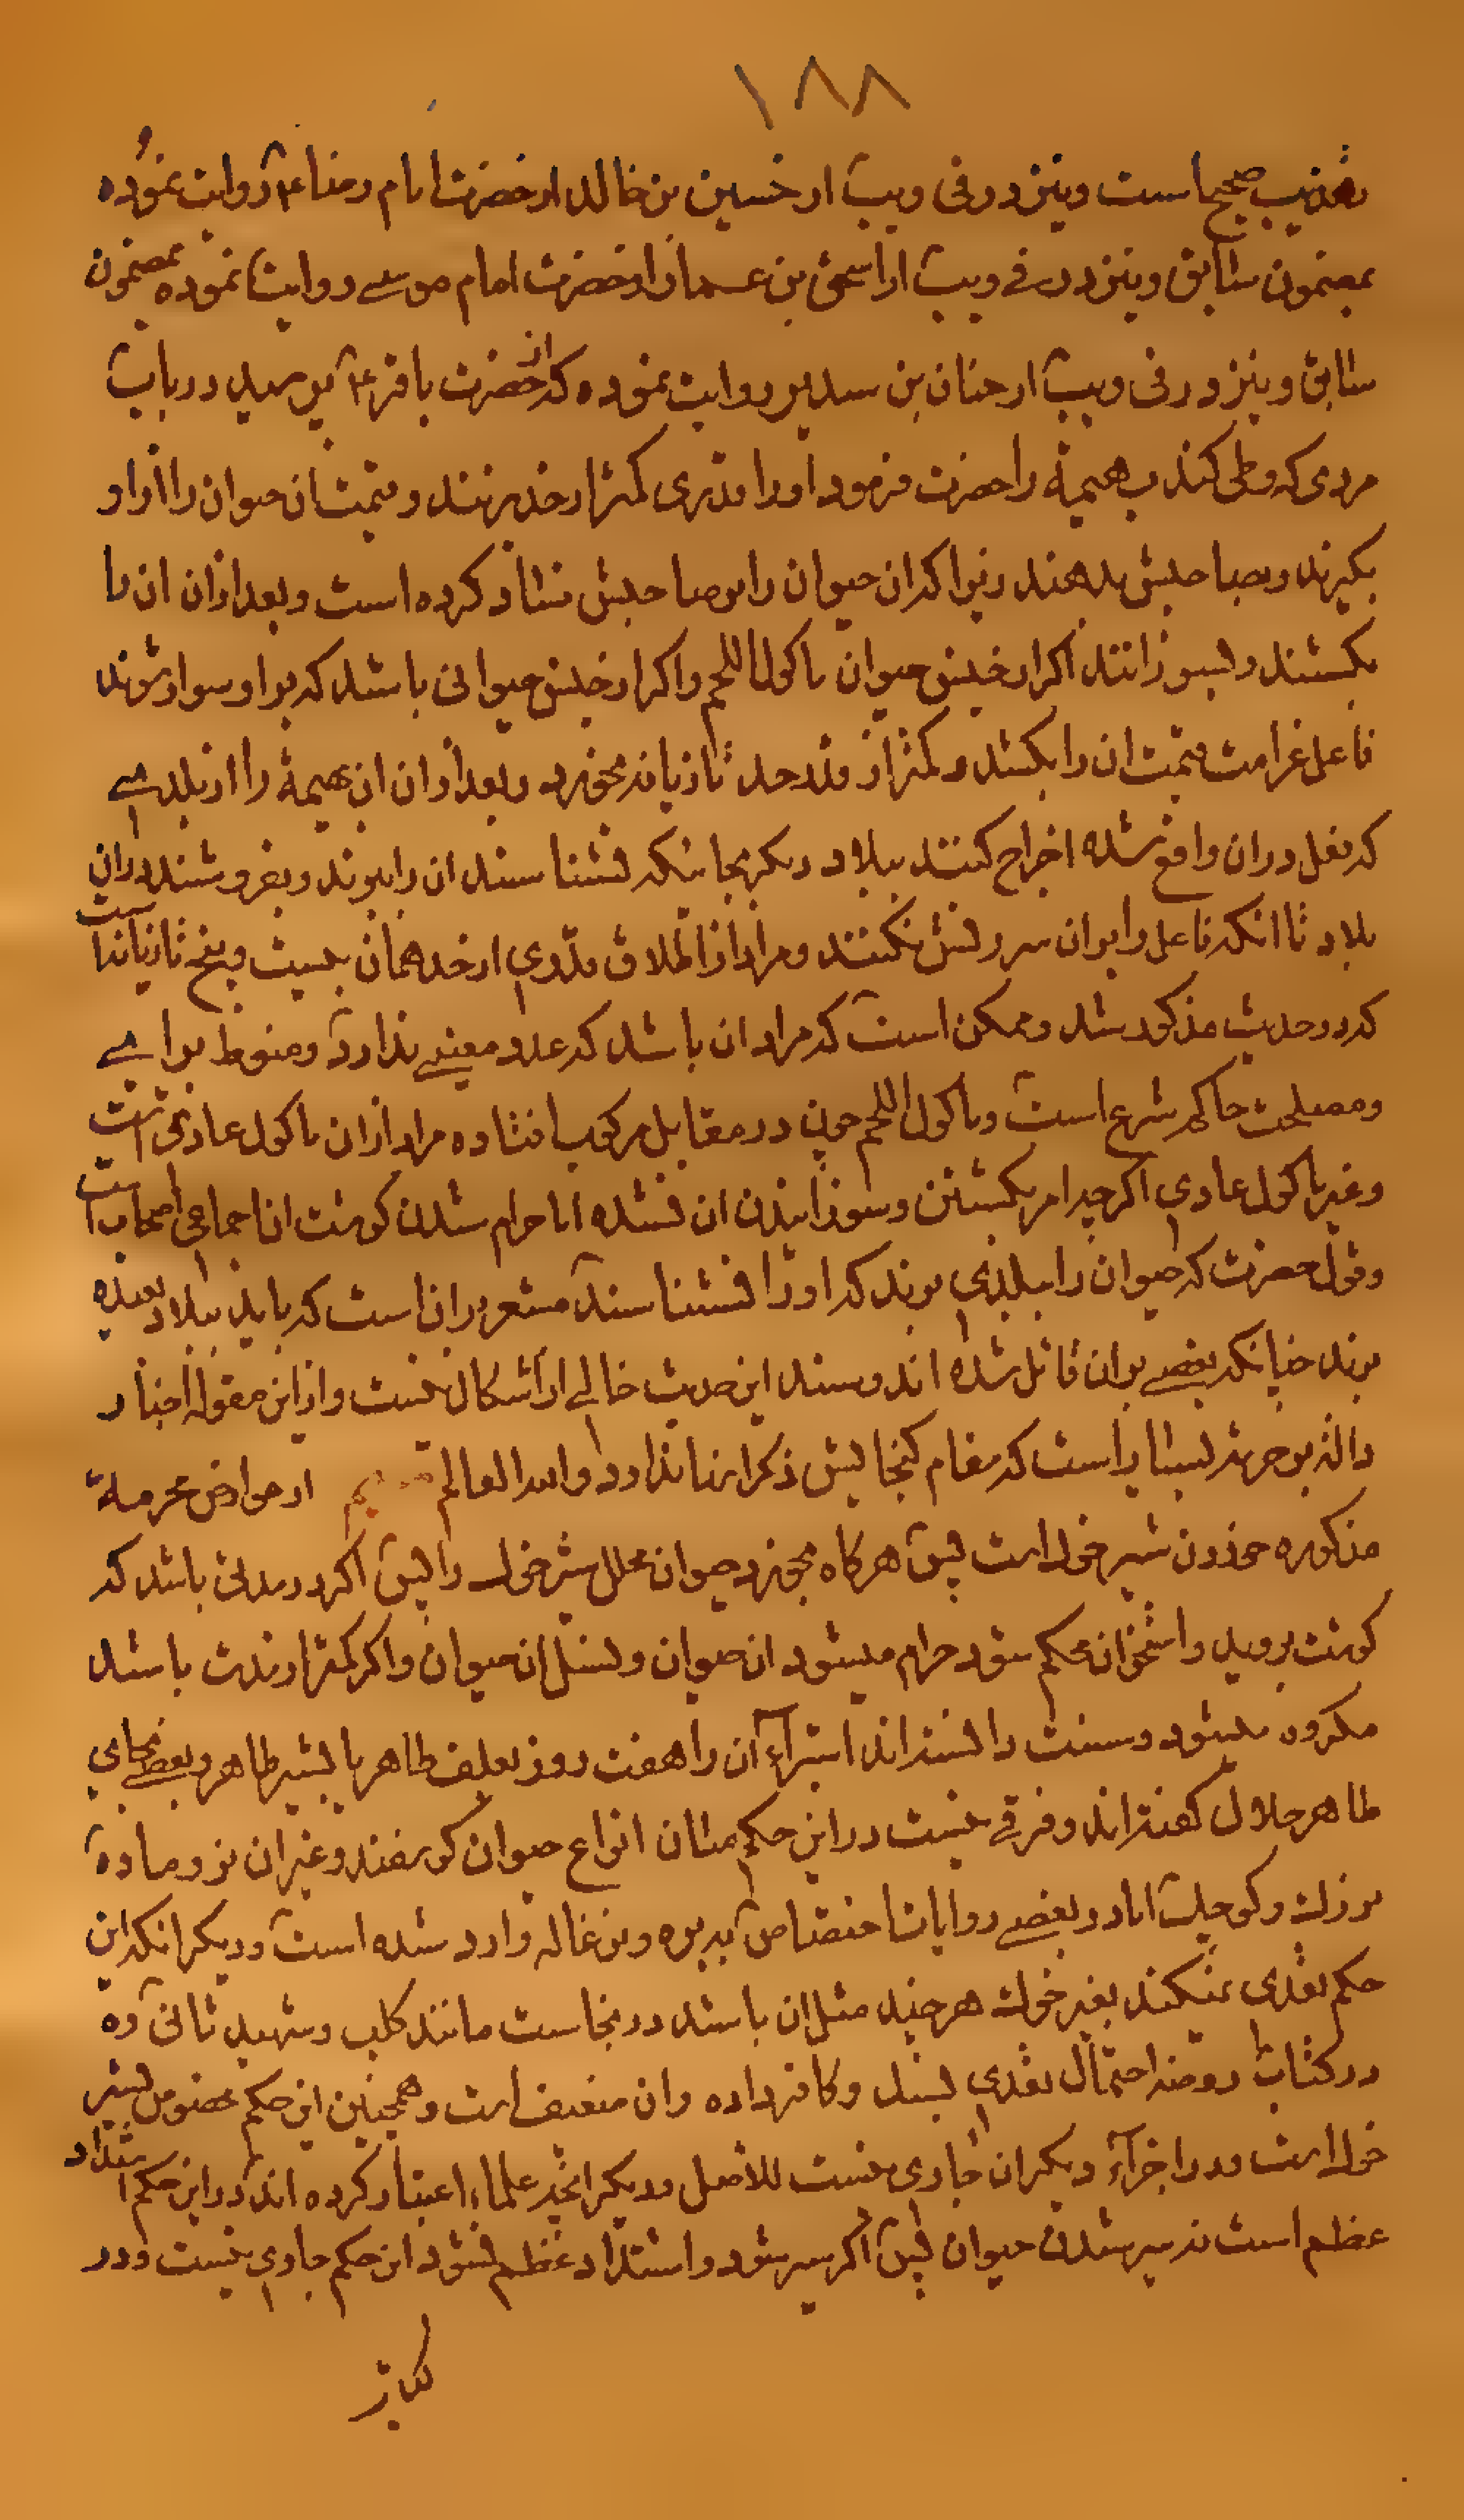 ١٨٨
تهذیب صحیح است ونیز در فی ویب از حسین بن خالد از حضرت امام رضا ع روایت نموده
بمضمون سابق ونیز در فی ویب از اسحق بن عمار از حضرت امام موسی روایت نموده بمضمون
سابق ونیز در فی ویب از حنان بن سدیر روایت نموده که از حضرت باقر ع پرسید در باب
مردی که وطی کند بهیمهٔ را حضرت فرمود او را قدری کمتر از حد بزنند وقیمت ان حیوان را از او
بگیرند وبصاحبش بدهند زیرا که ان حیوان را بر صاحبش فساد کرده است وبعد ازان ان را
بکشند وبسوزانند اکر از جنس حیوان ماکول اللحم واکر از جنس حیوانی باشد که بر او سوار شوند
فاعل غرامت قیمت ان را بکشد وکمتر از قدر حد تازیانه بخورد وبعد ازان ان بهیمهٔ را از بلدی
که فعل دران واقع شده اخراج کنند ببلاد دیکر بجائیکه نشناسند ان را ببرند وبفروشند دران
بلاد تا انکه فاعل را بران سرزنش نکنند ومراد از اطلاق قدری از حد همان بیست وپنج تازیانه است
که در حدیث مذکور شد وممکن است که مراد ان باشد که عدد معینی ندارد ومنوط برای
ومصلحت حاکم شرع است وماکول اللحم چون در مقابل مرکوب افتاده مراد ازان ماکول عادی است
وغیر ماکول عادی اکرچه امر بکشتن وسوزانیدن ان نشده اما حرام شدن کوشت ان اجماعی اصحاب است
وقول حضرت که حیوان را ببلدی برند که او را نشناسند مشعر بران است که باید ببلاد بعیده
برند چنانکه بعضی بران قائل شده اند وسند این حدیث خالی از اشکال نیست واز این مقوله اخبار
داله بر حرمة بسیار است که مقام کنجایش ذکر انها ندارد والله العالم از عوارض محرمهٔ
مذکوره خوردن شیر خوک است پس هرکاه بخورد حیوان محلل شیر خوک را پس اکر در مدتی باشد که
کوشت بروید واستخوان محکم شود حرام میشود ان حیوان ونسل ان حیوان واکر کمتر از مدت باشد
مکروه میشود وسنت دانسته اند استبرآء آن را هفت روز بعلف طاهر یا بشیر طاهر وبعضی بجای
طاهر حلال کفته اند وفرقی نیست در این حکم میان انواع حیوان کوسفند وغیر ان نر وماده
بزرك وکوچك اما در بعضی روایات اختصاص به بره وبزغاله وارد شده است ودیکر انکه این
حکم تعدی نمیکند بغیر خوك هرچند مثل ان باشد در نجاست مانند کلب وشهید ثانی ره
در کتاب روضه احتمال تعدی بسك وکافر داده وان ضعیف است وهمچنین این حکم مخصوص بشیر
خوك است ودر اجزآء دیکر ان جاری نیست للاصل ودیکر انچه علماء اعتبار کرده اند در این حکم اشتداد
عظم است نه سیر شدن حیوان پس اکر سیر شود واشتداد عظم نشود این حکم جاری نیست ودر